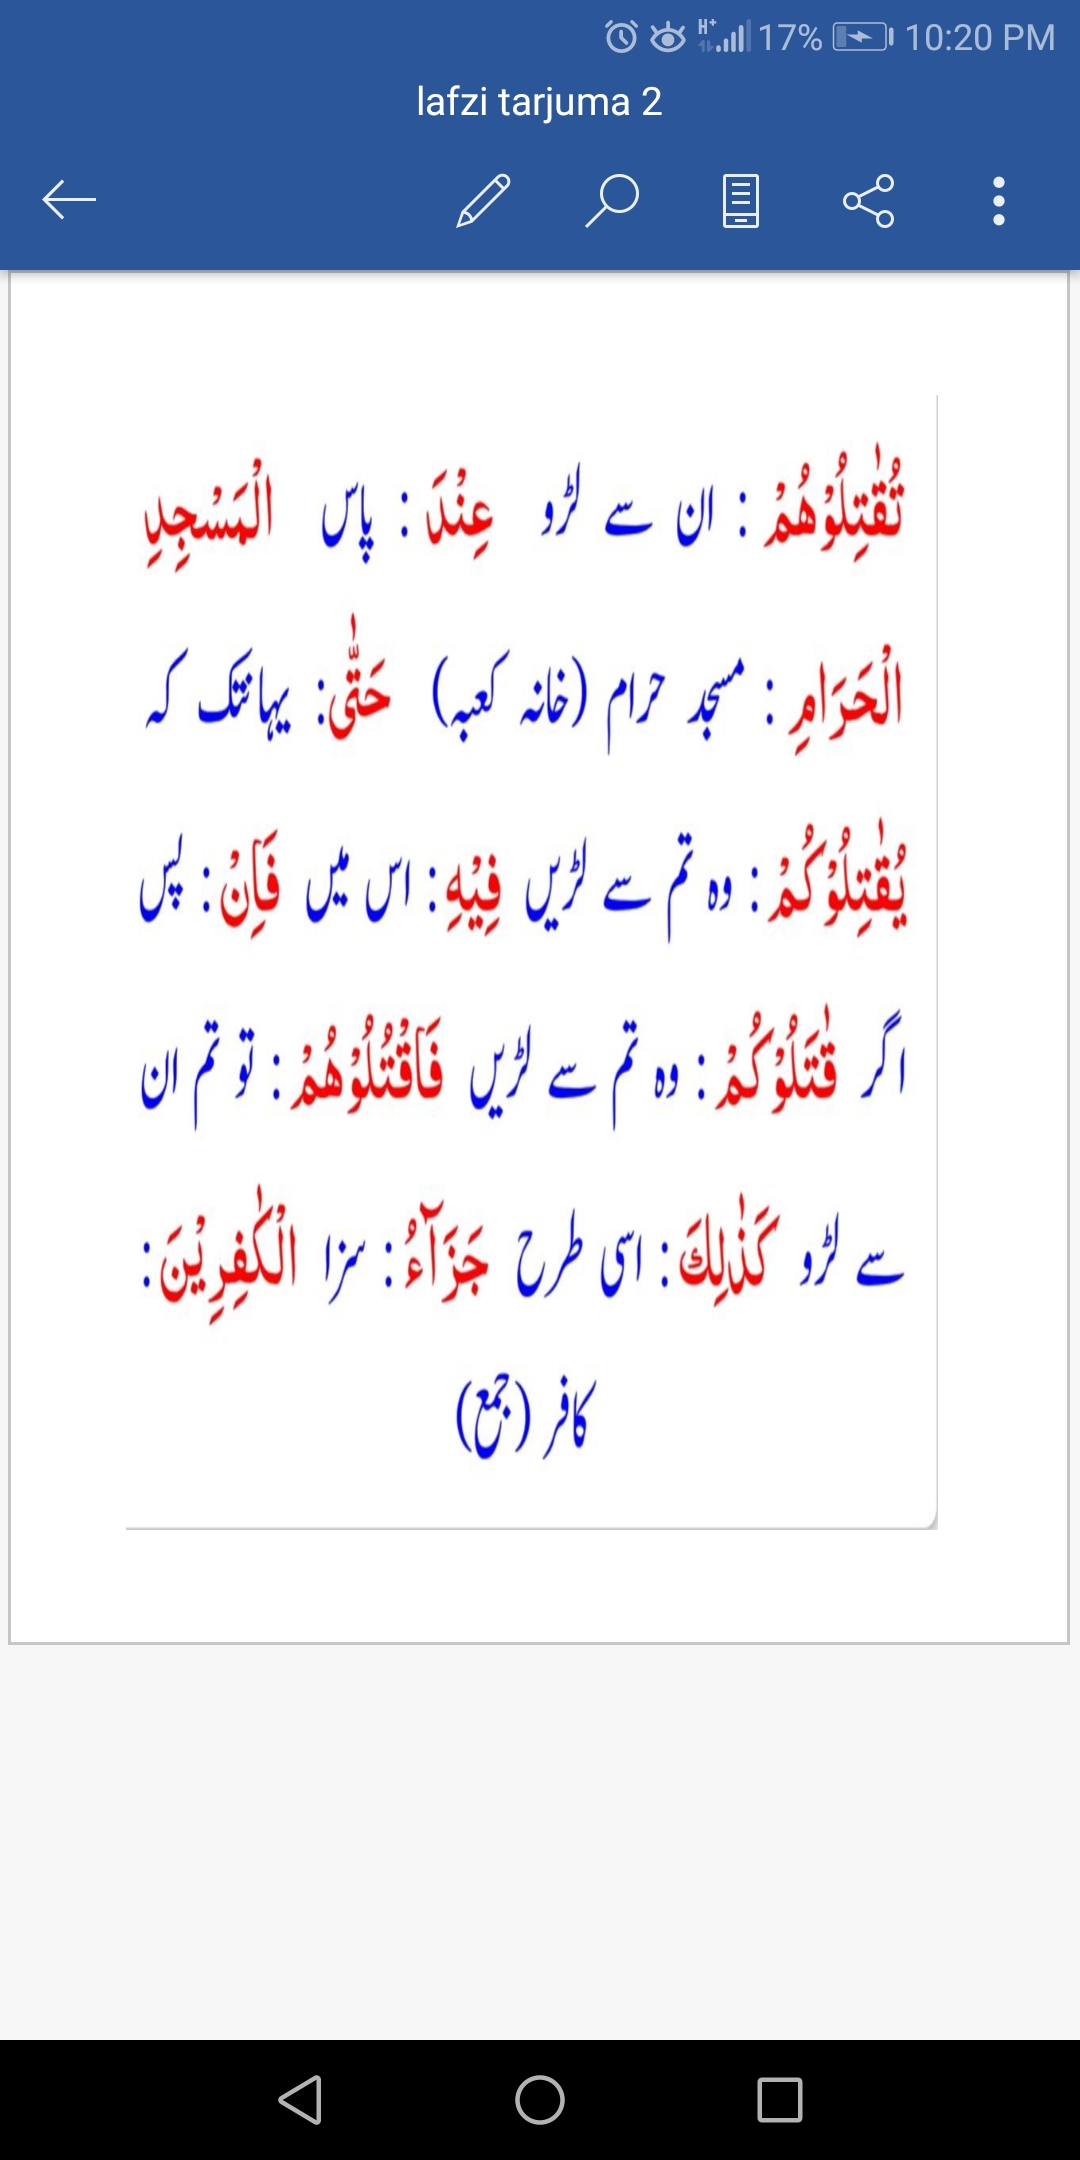 17% 10:20 PM
lafzi tarjuma 2
تُقٰتِلُوْهُمْ : ان سے لڑو عِنْدَ : پاس الْمَسْجِدِ
الْحَرَامِ : مسجد حرام (خانہ کعبہ) حَتّٰى : یہانتک کہ
يُقٰتِلُوْكُمْ : وہ تم سے لڑیں فِيْهِ : اس میں فَاِنْ : پس
اگر قٰتَلُوْكُمْ : وہ تم سے لڑیں فَاقْتُلُوْهُمْ : تو تم ان
سے لڑو كَذٰلِكَ : اسی طرح جَزَآءُ : سزا الْكٰفِرِيْنَ :
کافر (جمع)